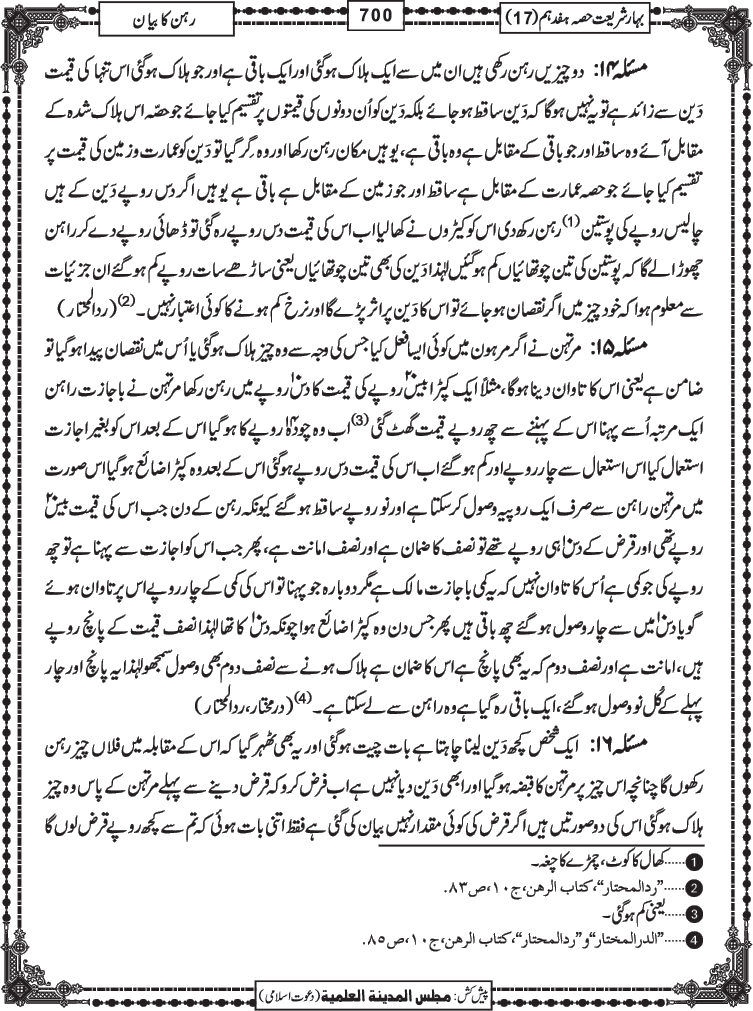 بہار شریعت حصہ ہفدہم (17)
700
رہن کا بیان
مسئلہ ۱۴: دو چیزیں رہن رکھی ہیں ان میں سے ایک ہلاک ہوگئی اور ایک باقی ہے اور جو ہلاک ہوگئی اس تنہا کی قیمت
دَین سے زائد ہے تو یہ نہیں ہوگا کہ دَین ساقط ہو جائے بلکہ دَین کو اُن دونوں کی قیمتوں پر تقسیم کیا جائے جو حصّہ اس ہلاک شدہ کے
مقابل آئے وہ ساقط اور جو باقی کے مقابل ہے وہ باقی ہے، یوہیں مکان رہن رکھا اور وہ گر گیا تو دَین کو عمارت و زمین کی قیمت پر
تقسیم کیا جائے جو حصہ عمارت کے مقابل ہے ساقط اور جو زمین کے مقابل ہے باقی ہے یوہیں اگر دس روپے دَین کے ہیں
چالیس روپے کی پوستین (1) رہن رکھ دی اس کو کیڑوں نے کھا لیا اب اس کی قیمت دس روپے رہ گئی تو ڈھائی روپے دے کر راہن
چھوڑا لے گا کہ پوستین کی تین چوتھائیاں کم ہوگئیں لہٰذا دَین کی بھی تین چوتھائیاں یعنی ساڑھے سات روپے کم ہوگئے ان جزئیات
سے معلوم ہوا کہ خود چیز میں اگر نقصان ہو جائے تو اس کا دَین پر اثر پڑے گا اور نرخ کم ہونے کا کوئی اعتبار نہیں۔ (2) (ردالمحتار)
مسئلہ ۱۵: مرتہن نے اگر مرہون میں کوئی ایسا فعل کیا جس کی وجہ سے وہ چیز ہلاک ہوگئی یا اُس میں نقصان پیدا ہوگیا تو
ضامن ہے یعنی اس کا تاوان دینا ہوگا، مثلاً ایک کپڑا بیس۲۰ روپے کی قیمت کا دس۱۰ روپے میں رہن رکھا مرتہن نے باجازت راہن
ایک مرتبہ اُسے پہنا اس کے پہننے سے چھ روپے قیمت گھٹ گئی (3) اب وہ چودہ۱۴ روپے کا ہوگیا اس کے بعد اس کو بغیر اجازت
استعمال کیا اس استعمال سے چار روپے اور کم ہوگئے اب اس کی قیمت دس روپے ہوگئی اس کے بعد وہ کپڑا ضائع ہوگیا اس صورت
میں مرتہن راہن سے صرف ایک روپیہ وصول کرسکتا ہے اور نو روپے ساقط ہوگئے کیونکہ رہن کے دن جب اس کی قیمت بیس۲۰
روپے تھی اور قرض کے دس۱۰ ہی روپے تھے تو نصف کا ضمان ہے اور نصف امانت ہے، پھر جب اس کو اجازت سے پہنا ہے تو چھ
روپے کی جو کمی ہے اُس کا تاوان نہیں کہ یہ کمی باجازت مالک ہے مگر دوبارہ جو پہنا تو اس کی کمی کے چار روپے اس پر تاوان ہوئے
گویا دس۱۰ میں سے چار وصول ہوگئے چھ باقی ہیں پھر جس دن وہ کپڑا ضائع ہوا چونکہ دس۱۰ کا تھا لہٰذا نصف قیمت کے پانچ روپے
ہیں، امانت ہے اور نصف دوم کہ یہ بھی پانچ ہے اس کا ضمان ہے ہلاک ہونے سے نصف دوم بھی وصول سمجھو لہٰذا یہ پانچ اور چار
پہلے کے کُل نو وصول ہوگئے، ایک باقی رہ گیا ہے وہ راہن سے لے سکتا ہے۔ (4) (درمختار، ردالمحتار)
مسئلہ ۱۶: ایک شخص کچھ دَین لینا چاہتا ہے بات چیت ہوگئی اور یہ بھی ٹھہر گیا کہ اس کے مقابلہ میں فلاں چیز رہن
رکھوں گا چنانچہ اس چیز پر مرتہن کا قبضہ ہوگیا اور ابھی دَین دیا نہیں ہے اب فرض کرو کہ قرض دینے سے پہلے مرتہن کے پاس وہ چیز
ہلاک ہوگئی اس کی دو صورتیں ہیں اگر قرض کی کوئی مقدار نہیں بیان کی گئی ہے فقط اتنی بات ہوئی کہ تم سے کچھ روپے قرض لوں گا
1 ......کھال کا کوٹ، چمڑے کا چغہ۔
2 ......"ردالمحتار"، کتاب الرھن، ج۱۰، ص۸۳.
3 ......یعنی کم ہوگئی۔
4 ......"الدرالمختار" و "ردالمحتار"، کتاب الرھن، ج۱۰، ص۸۵.
پیش کش: مجلس المدینۃ العلمیۃ (دعوت اسلامی)